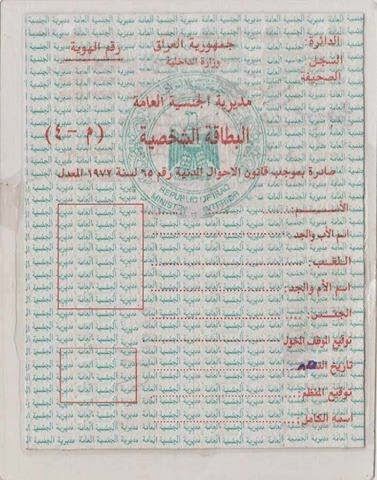 جمهورية العراق
وزارة الداخلية
مديرية الجنسية العامة
البطاقة الشخصية
(م - ٤)
الدائرة:
السجل
الصحيفة
رقم الهوية
صادرة بموجب قانون الاحوال المدنية رقم ٦٥ لسنة ١٩٧٢ المعدل
الأســم:
اسم الأب والجد:
اللقـب:
اسم الأم والجد:
الجنـس:
توقيع الموظف المخول
تاريخ
توقيع المنظم
اسمه الكامل:
REPUBLIC OF IRAQ
MINISTRY OF INTERIOR
مديرية الجنسية العامة